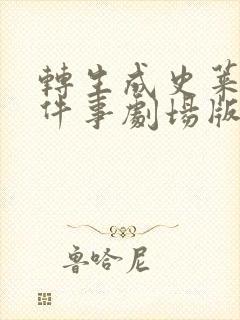 轉生成史萊
件事劇場版
魯哈尼